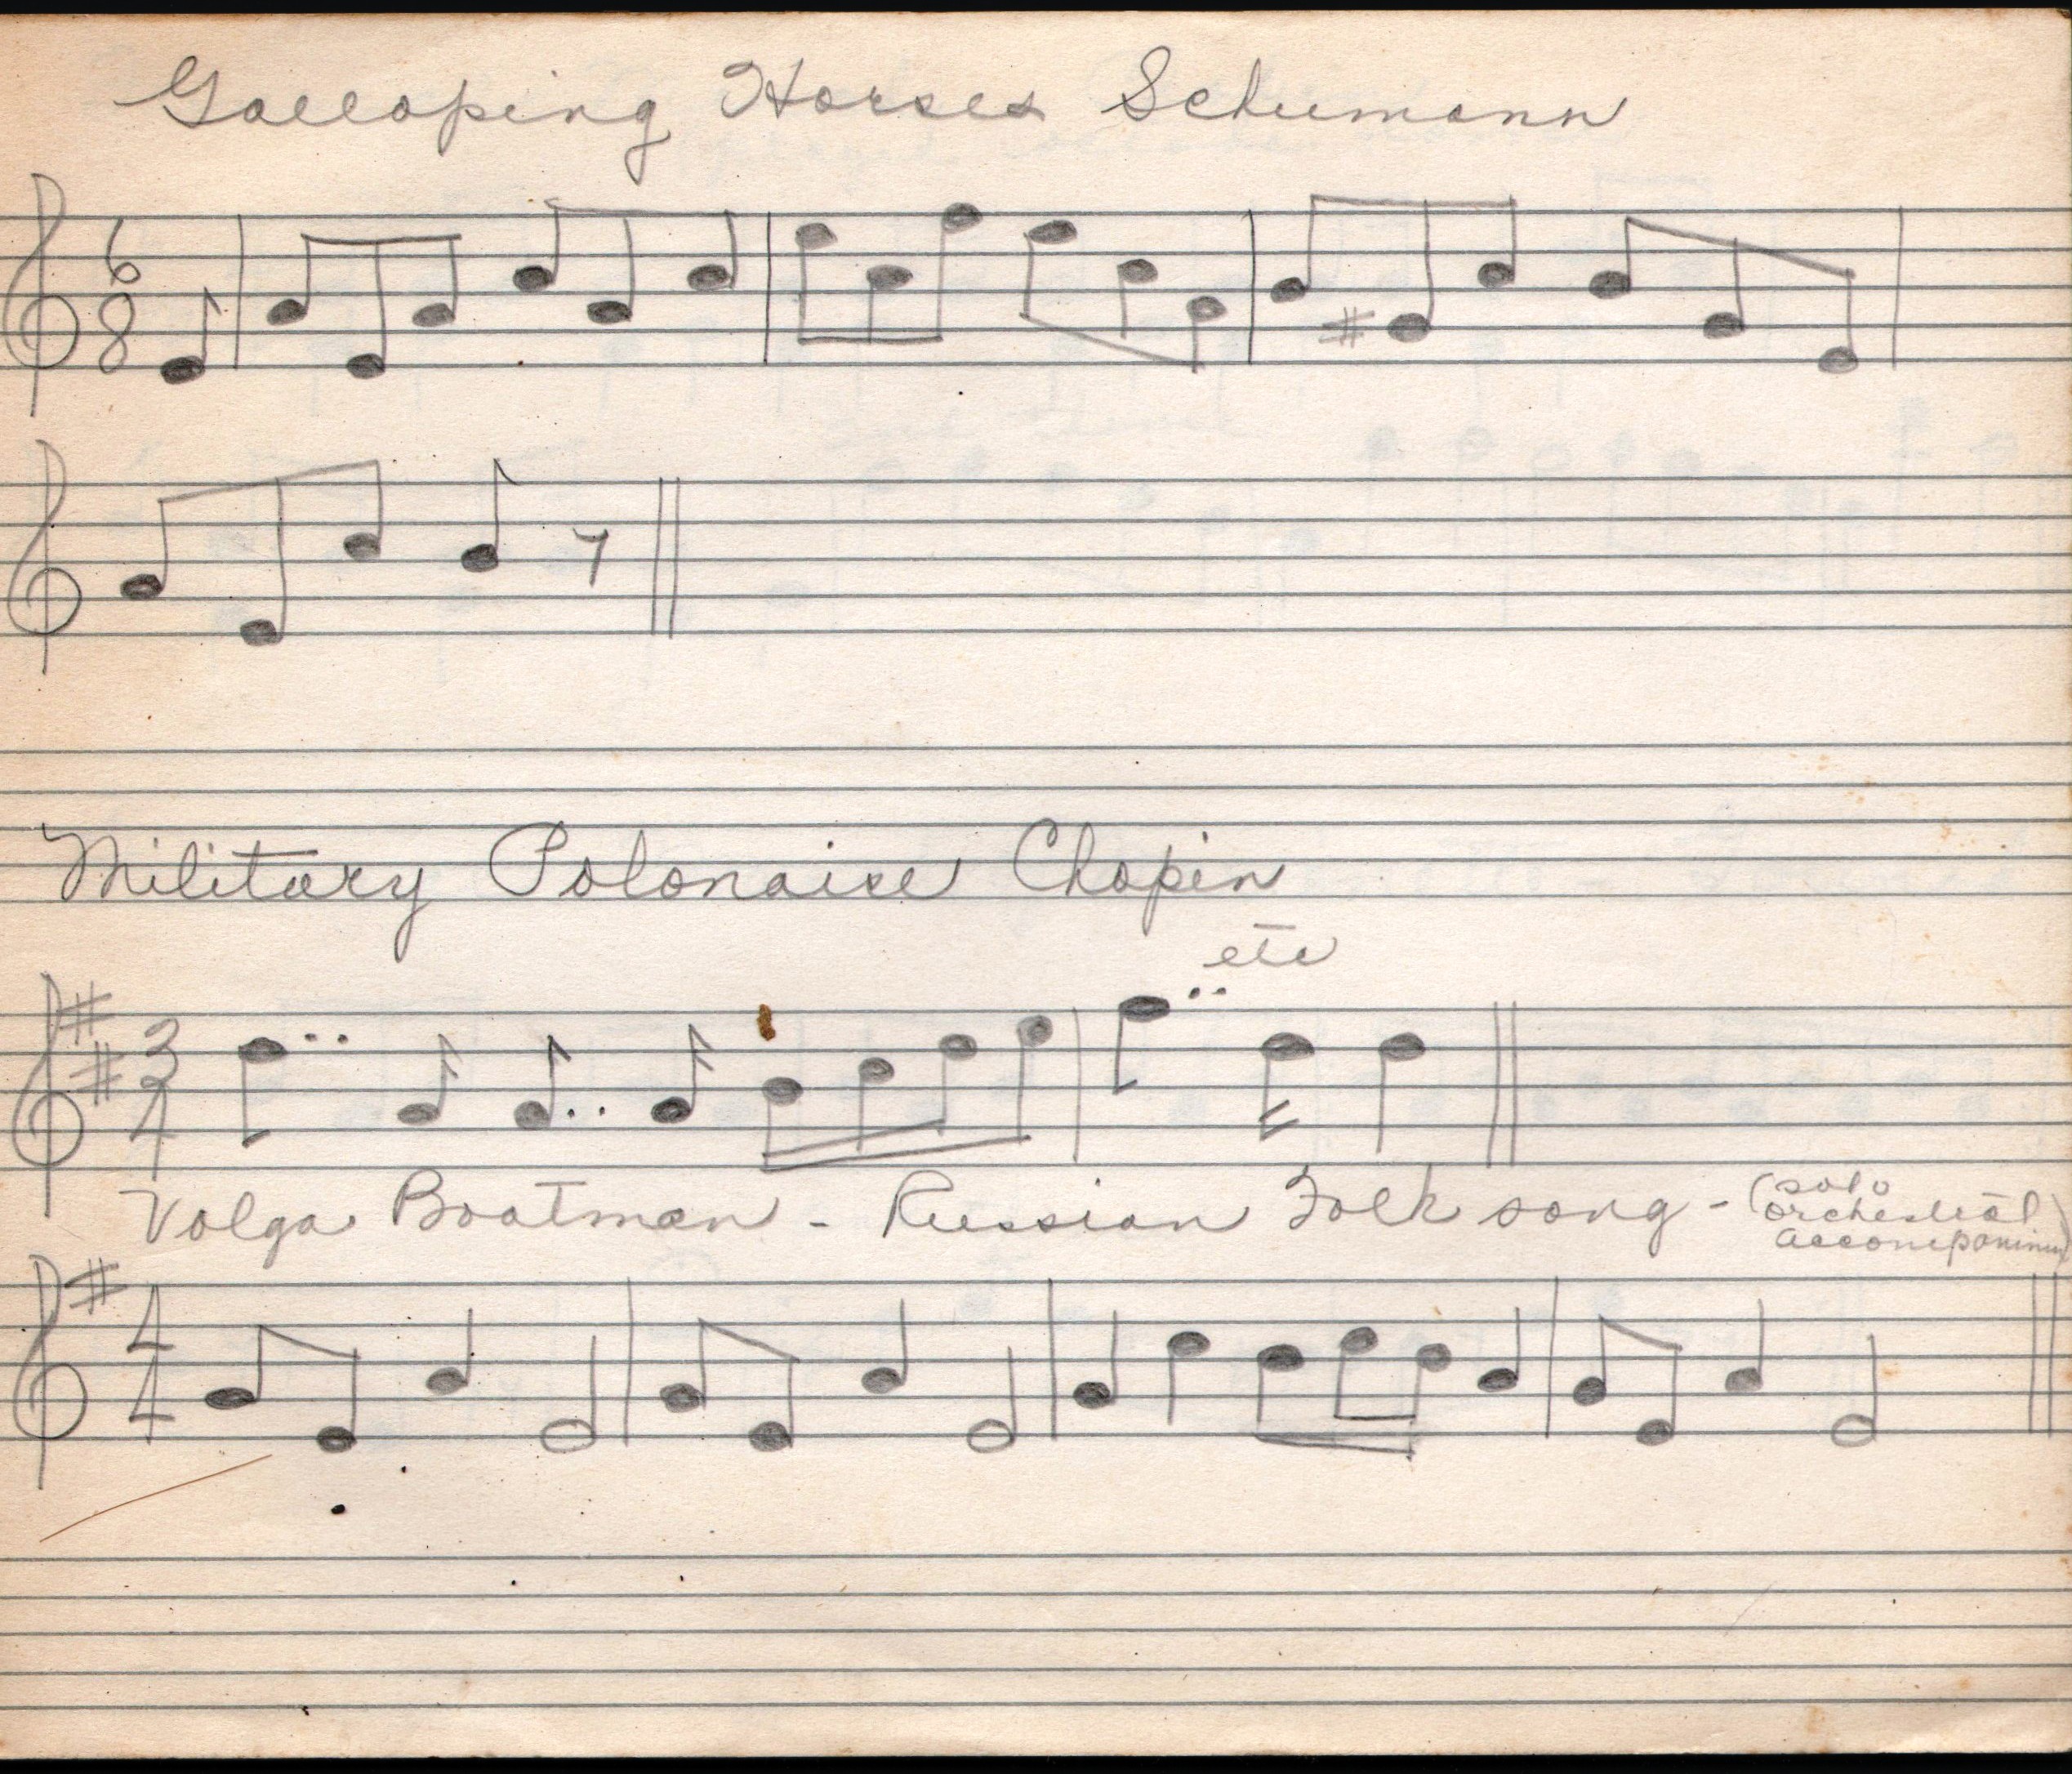 Galloping Horses Schumann
6
8
Military Polonaise Chopin
etc
3
4
Volga Boatman - Russian Folk song - (solo
orchestral
4
4